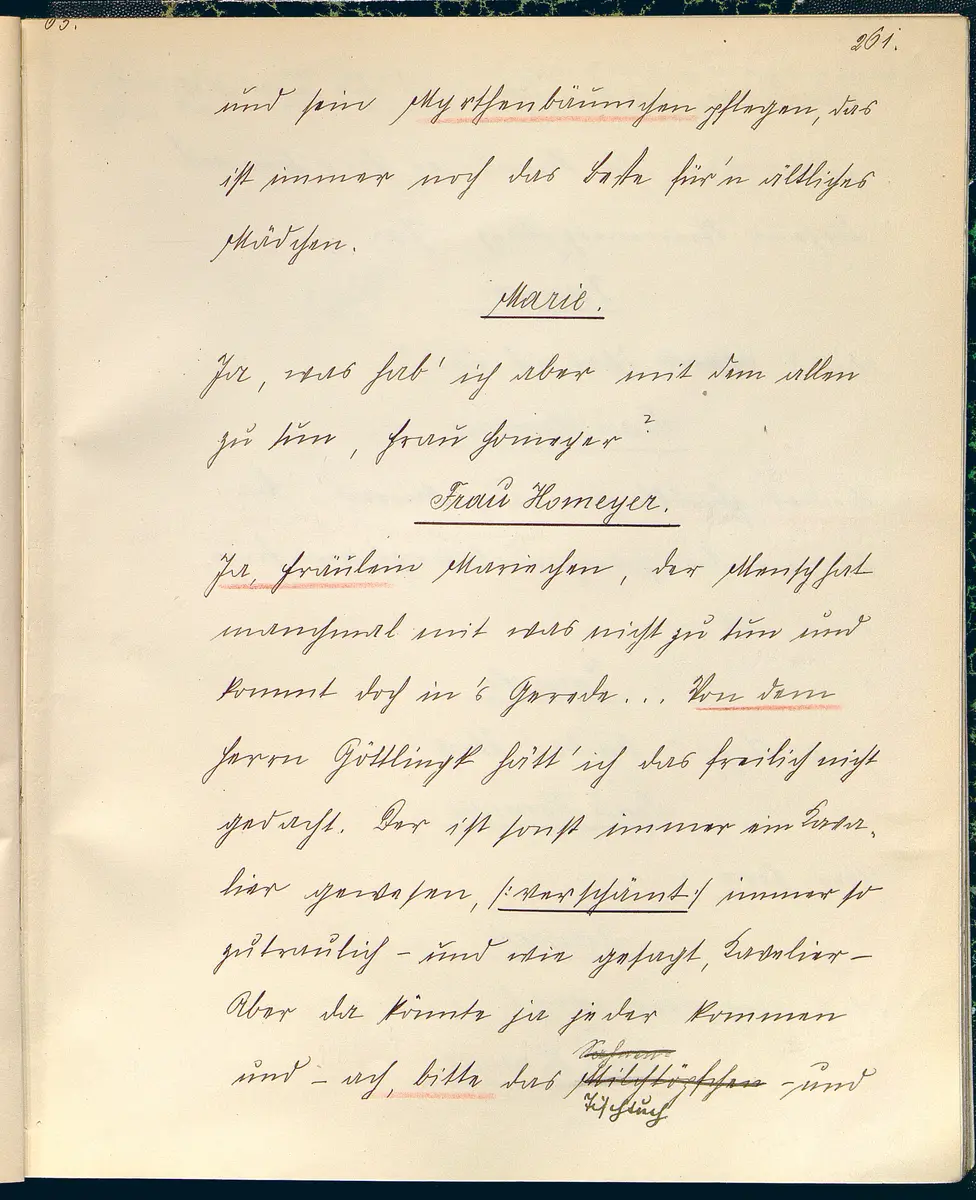 261.
und sein Myrthenbäumchen pflegen, das
ist immer noch das Beste für'n ältliches
Mädchen.
Marie.
Ja, was hab' ich aber mit dem allen
zu tun, Frau Homeyer?
Frau Homeyer.
Ja, Fräulein Mariechen, der Mensch hat
manchmal mit was nicht zu tun und
kommt doch in's Gerede... Von dem
Herrn Göttlingk hätt' ich das freilich nicht
gedacht. Der ist sonst immer ein Kava-
lier gewesen, /:verschämt:/ immer so
zutraulich – und wie gesagt, Kavalier –
Aber da könnte ja jeder kommen
und – ach, bitte das Milchtöpfchen – und
Tischtuch